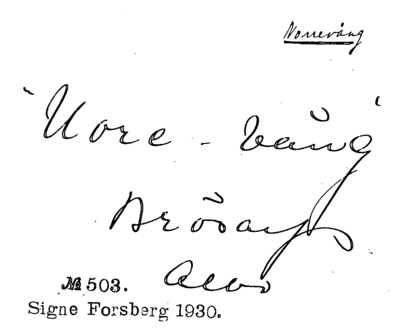 Norrevång
"Nore-vång"
Brösarps
Albo
№ 503.
Signe Forsberg 1930.